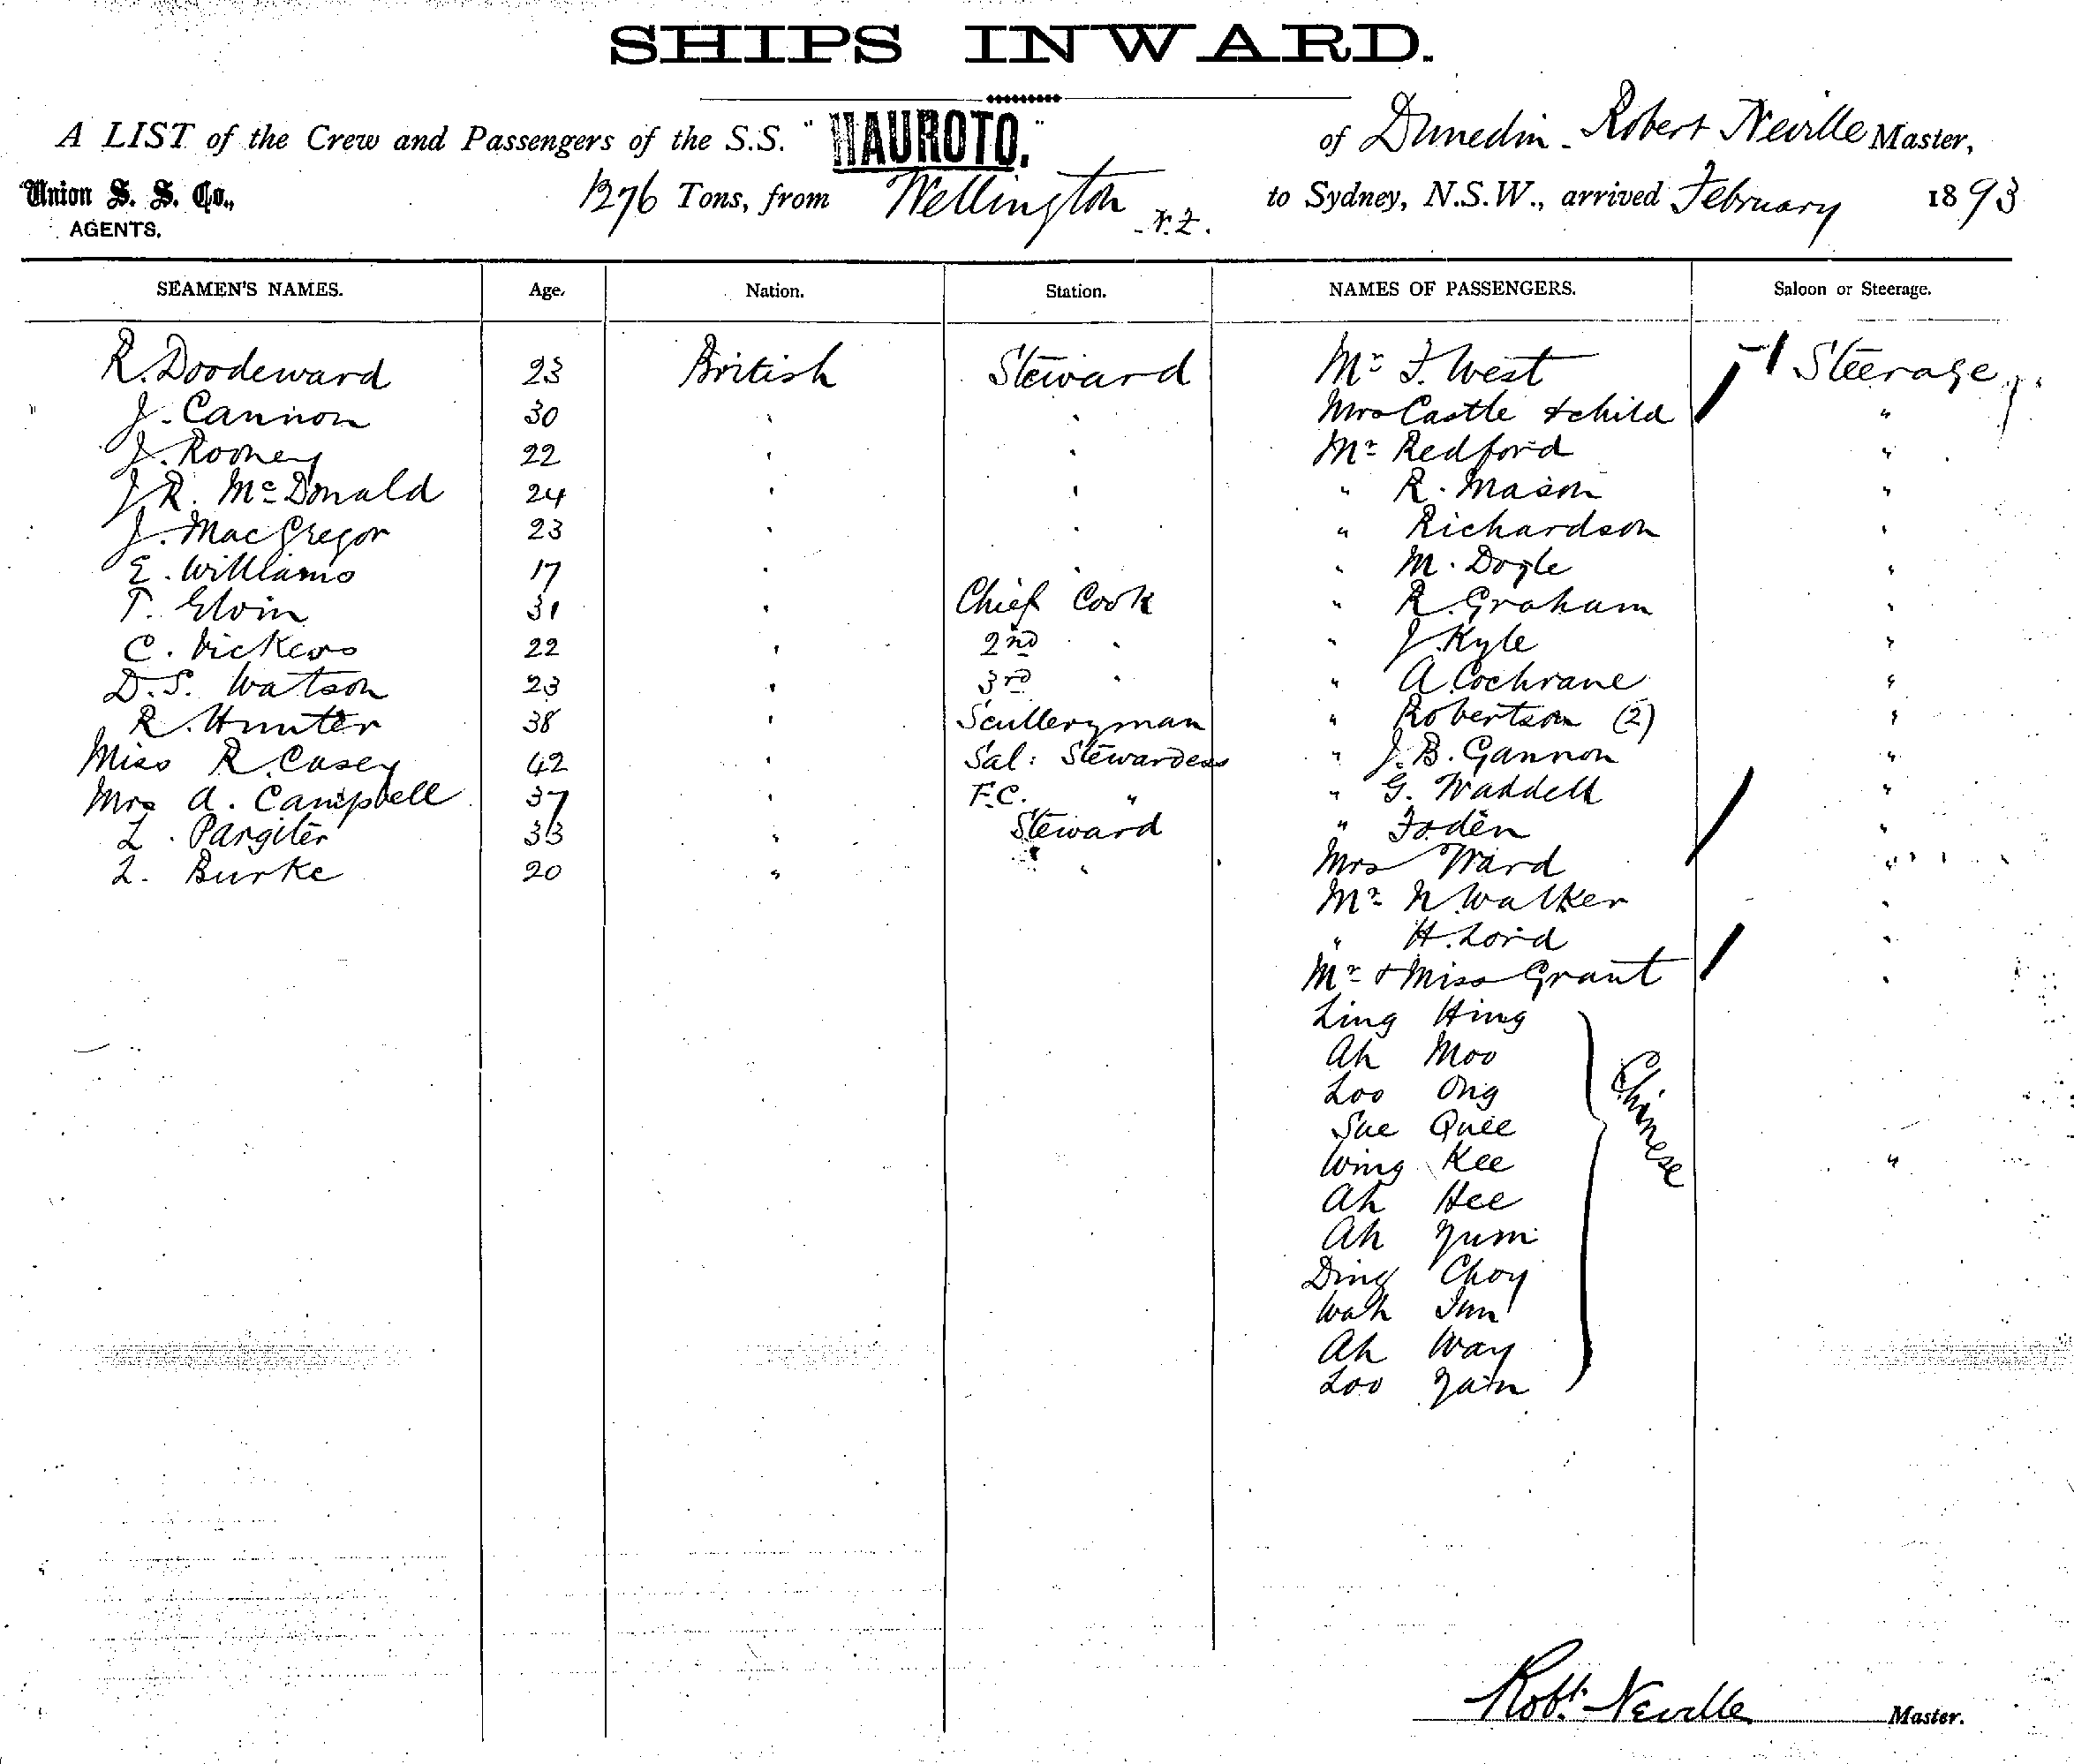 SHIPS INWARD.
A LIST of the Crew and Passengers of the S.S. "HAUROTO," of Dunedin - Robert Neville Master,
Union S. S. Co., 1276 Tons, from Wellington N.Z. to Sydney, N.S.W., arrived February 1893
AGENTS.
SEAMEN'S NAMES. Age. Nation. Station. NAMES OF PASSENGERS. Saloon or Steerage.
R. Doodeward 23 British Steward Mr F. West 1 Steerage
J. Cannon 30 " " Mrs Castle & child "
J. Rooney 22 " " Mr Redford "
J. R. McDonald 24 " " " R. Mason "
J. MacGregor 23 " " " Richardson "
E. Williams 17 " " " M. Doyle "
T. Elvin 31 " Chief Cook " R. Graham "
C. Vickers 22 " 2nd " " J. Kyle "
D. S. Watson 23 " 3rd " " A. Cochrane "
R. Hunter 38 " Sculleryman " Robertson (2) "
Miss R. Casey 42 " Sal: Stewardess " J. B. Gannon "
Mrs A. Campbell 37 " F.C. " " G. Waddell "
L. Pargiter 33 " Steward " Foden "
L. Burke 20 " " Mrs Ward "
Mr N. Walker "
" H. Lord "
Mr & Miss Grant "
Ling Hing
Ah Moo
Loo Ong
Sue Quee
Wing Kee Chinese "
Ah Hee
Ah Yum
Ding Choy
Wah Jun
Ah Way
Loo Yain
Robt. Neville Master.